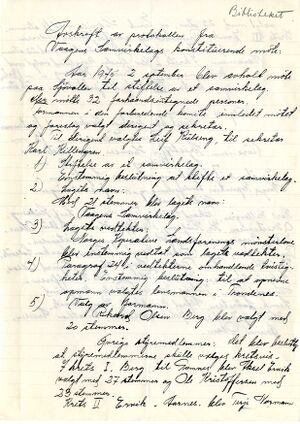 Biblioteket
Avskrift av protokollen fra
Vaagens Samvirkelags konstituerende møte:
Aar 1945 2 september blev avhold møte
paa Sjøvoller til stiftelse av et samvirkelag.
møtte 32 forhaandsinntegnede personer.
Formannen i den forberedende komite innledet møtet
og foreslog valgt derigent og sekretær.
Til derigent valgtes Leif Kulseng, til sekretær
Karl Killengren.
1) Stiftelse av et samvirkelag.
Enstemmig beslutning at stifte et samvirkelag.
2) Lagets navn:
Med 21 stemmer blev lagets navn:
Vaagens Samvirkelag.
3) Lagets vedtekter.
Norges Koperative Landsforenings mønsterlove
blev enstemmig vedtat som lagets vedtekter.
4) Paragraf 24 i vedtekterne omhandlende tvistig-
heter. Enstemmig beslutning: til at opnevne
opmann valgtes lensmannen i Trondenes.
5) Valg av formann.
Rikard Olsen Berg blev valgt med
20 stemmer.
Øvrige styremedlemmer: det blev besluttet
at styremedlemmerne skulle velges kretsvis.
Krets I. Berg til Sonnes blev Aksel Ervik
valgt med 27 stemmer og Ole Kristoffersen med
23 stemmer.
Krets II Ervik - Aarnes. blev Terje Normann